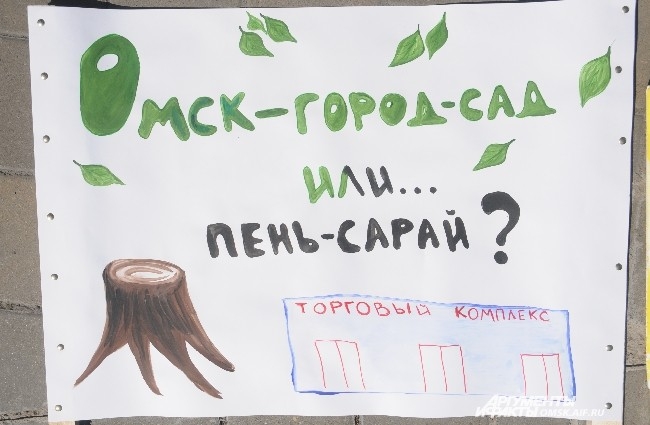 Омск-город-сад
или...
пень-сарай?
ТОРГОВЫЙ КОМПЛЕКС
АРГУМЕНТЫ
И ФАКТЫ OMSK.AIF.RU